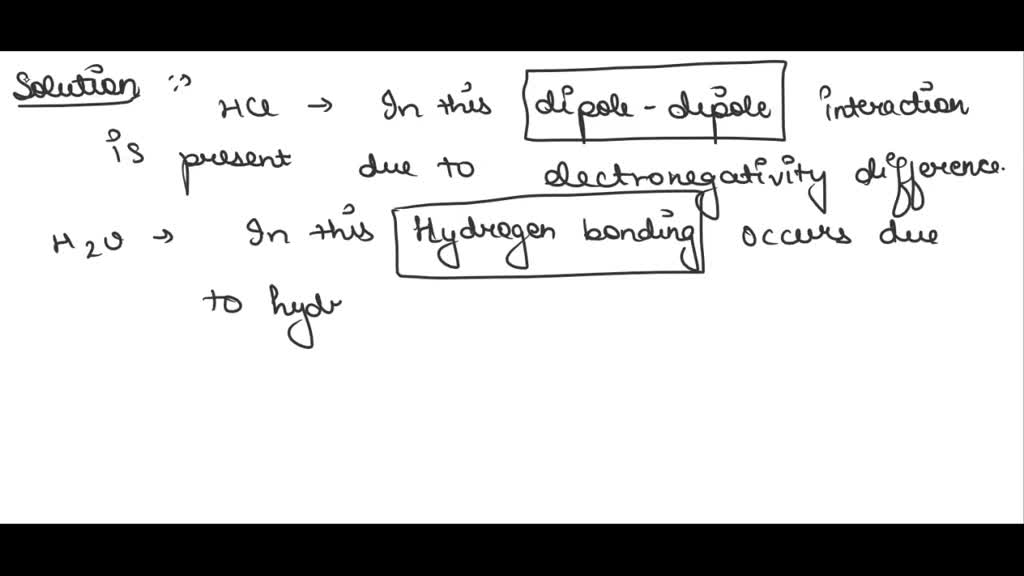 Solution ::
HCl → In this dipole-dipole interaction
is present due to electronegativity difference.
H2O → In this Hydrogen bonding occurs due
to hydr